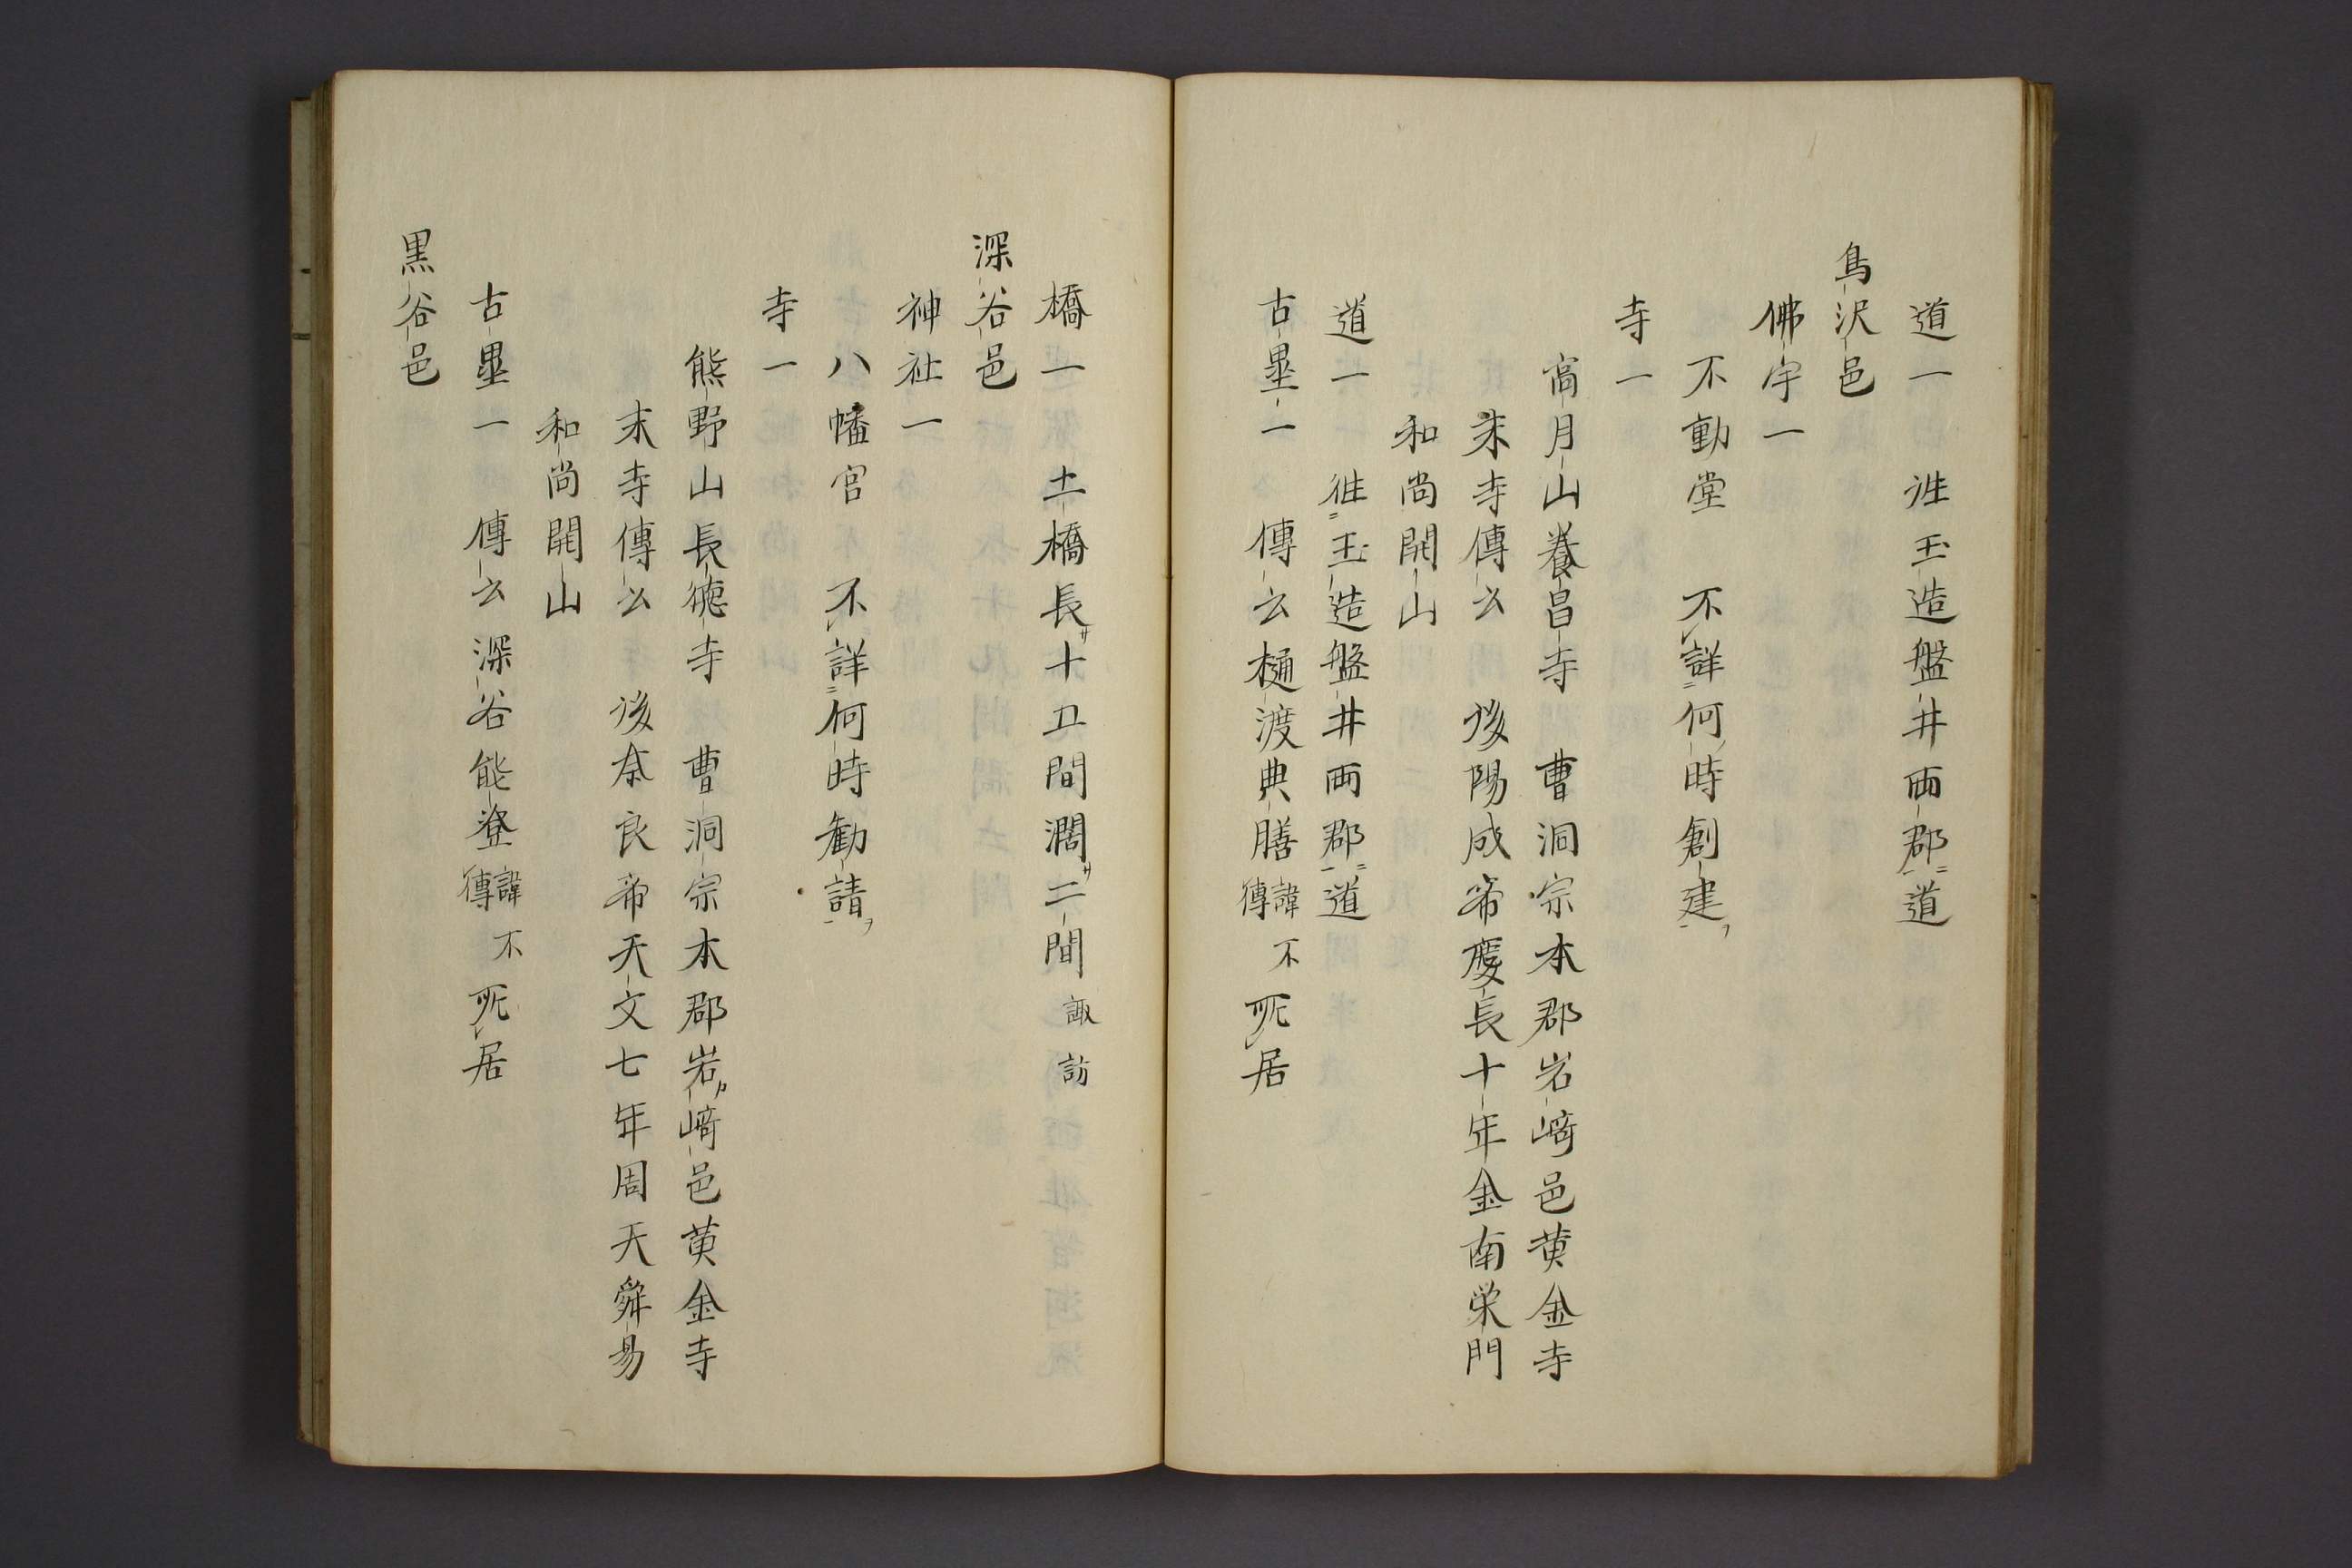 道一　往玉造盤井両郡道
鳥沢邑
佛宇一
不動堂　不詳何時創建
寺一
高月山養昌寺　曹洞宗本郡岩﨑邑黄金寺
末寺傳云　後陽成帝慶長十年金南栄門
和尚開山
道一　往玉造盤井両郡道
古壘一　傳云樋渡典膳諱不傳所居
橋一　土橋長十五間濶二間諏訪
深谷邑
神社一
八幡宮　不詳何時勧請
寺一
熊野山長徳寺　曹洞宗本郡岩﨑邑黄金寺
末寺傳云　後奈良帝天文七年周天舜易
和尚開山
古壘一　傳云深谷能登諱不傳所居
黒谷邑